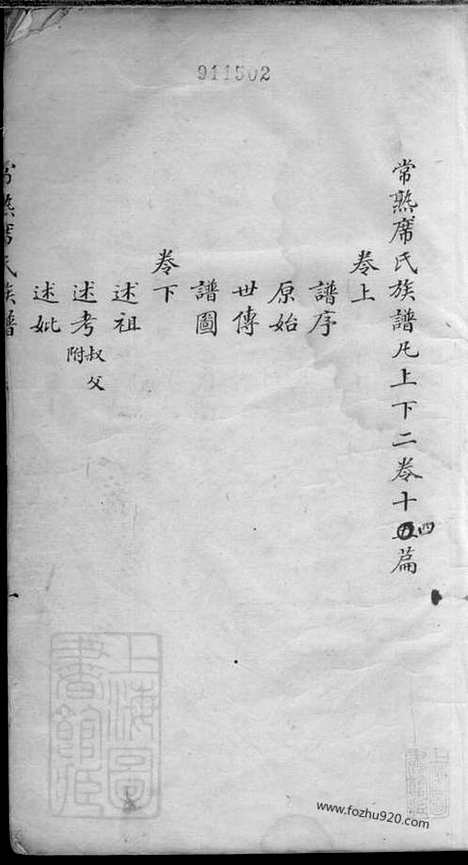 911502
常熟席氏族譜凡上下二卷十四篇
卷上
譜序
原始
世傳
譜圖
卷下
述祖
述考附叔父
述妣
常熟席氏族譜
一
上海圖書館藏
www.fozhu920.com